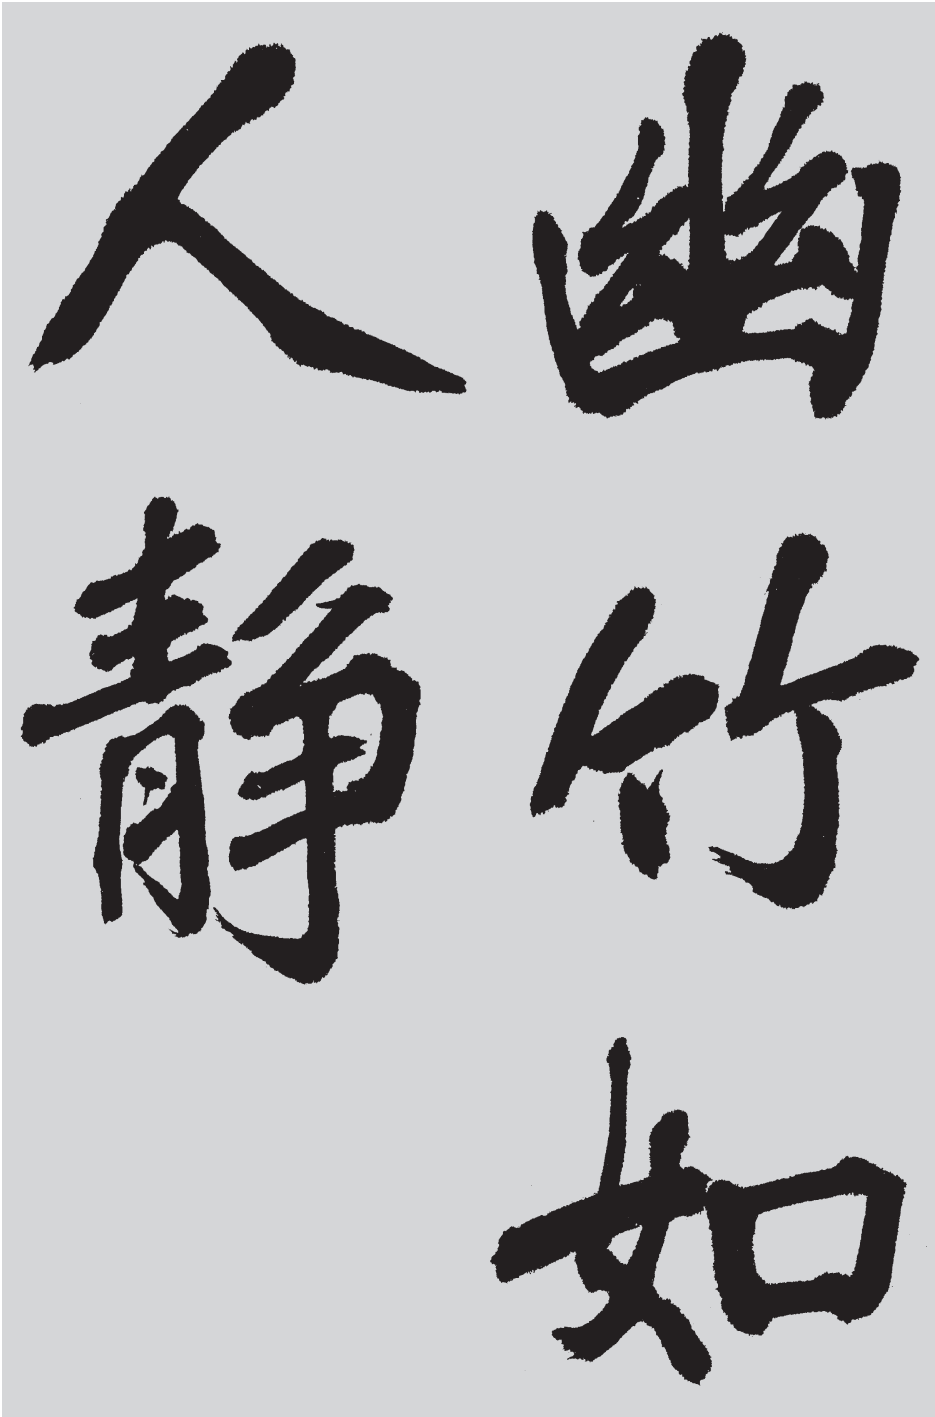 幽竹如
人静